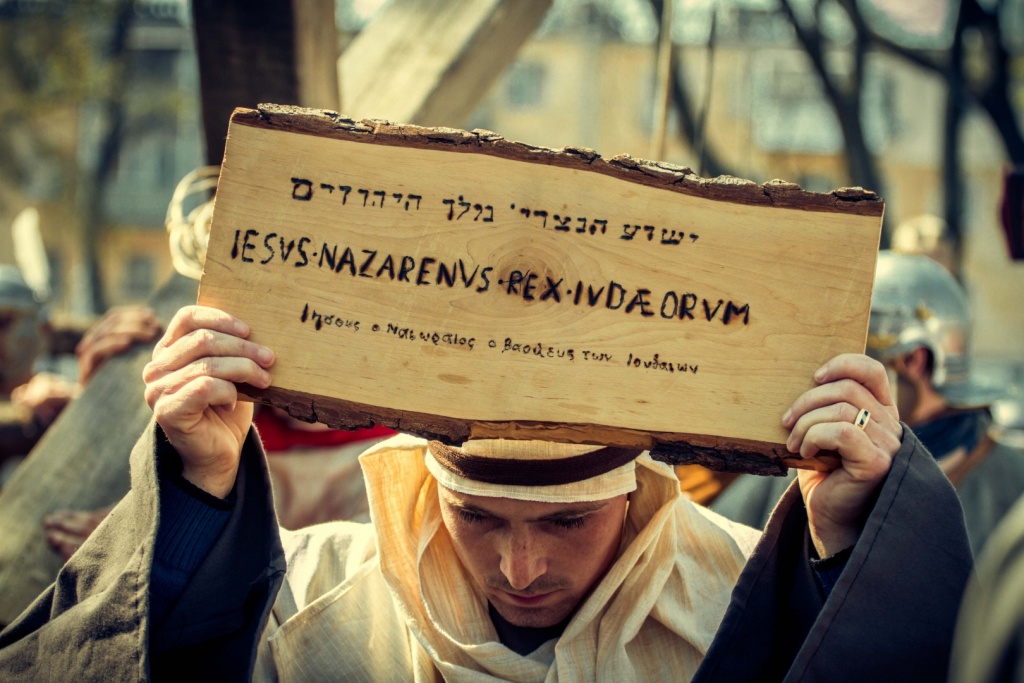 ישוע הנצרי מלך היהודיים
IESVS·NAZARENVS·REX·IVDÆORVM
Ιησους ο Ναζωραιος ο βασιλευς των Ιουδαιων